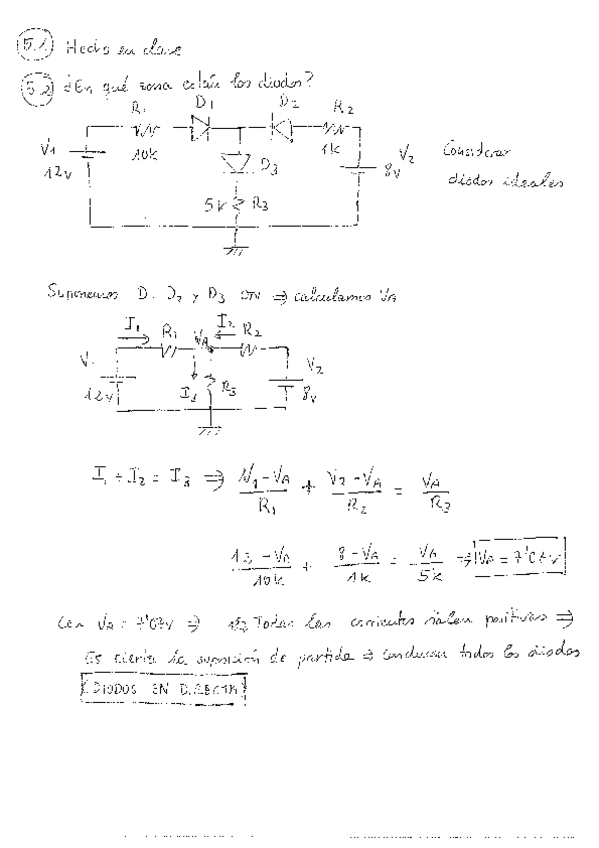 5.1 Hecho en clase
5.2 ¿En qué zona están los diodos?
R1 D1 D2 R2
V1 10k 1k V2 Considerar
12V D3 8V diodos ideales
5k R3
Suponemos D1 D2 y D3 ON ⇒ calculamos VA
I1 R1 VA I2 R2
V1 V2
12V I3 R3 8V
I1 + I2 = I3 ⇒ V1 - VA / R1 + V2 - VA / R2 = VA / R3
12 - VA / 10k + 8 - VA / 1k = VA / 5k ⇒ VA = 7'07V
Con VA = 7'07V ⇒ Todas las corrientes salen positivas ⇒
Es cierta la suposición de partida ⇒ conducen todos los diodos
DIODOS EN DIRECTA